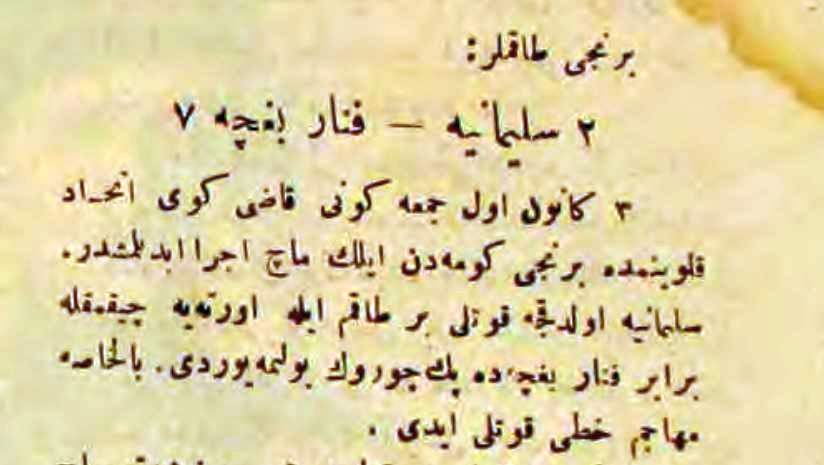 برنجی طاقملر:
۲ سلیمانیه — فنار بغچه ۷
۳ كانون اول جمعه كونی قاضی كوی اتحاد
قلوبنده برنجی كومه‌دن ایلك ماچ اجرا ایدلمشدر.
سلیمانیه اولدقجه قوتلی بر طاقم ایله اورته‌یه چیقمقله
برابر فنار بغچه‌ده پك چوروك بولنمه‌یوردی. بالخاصه
مهاجم خطی قوتلی ایدی .